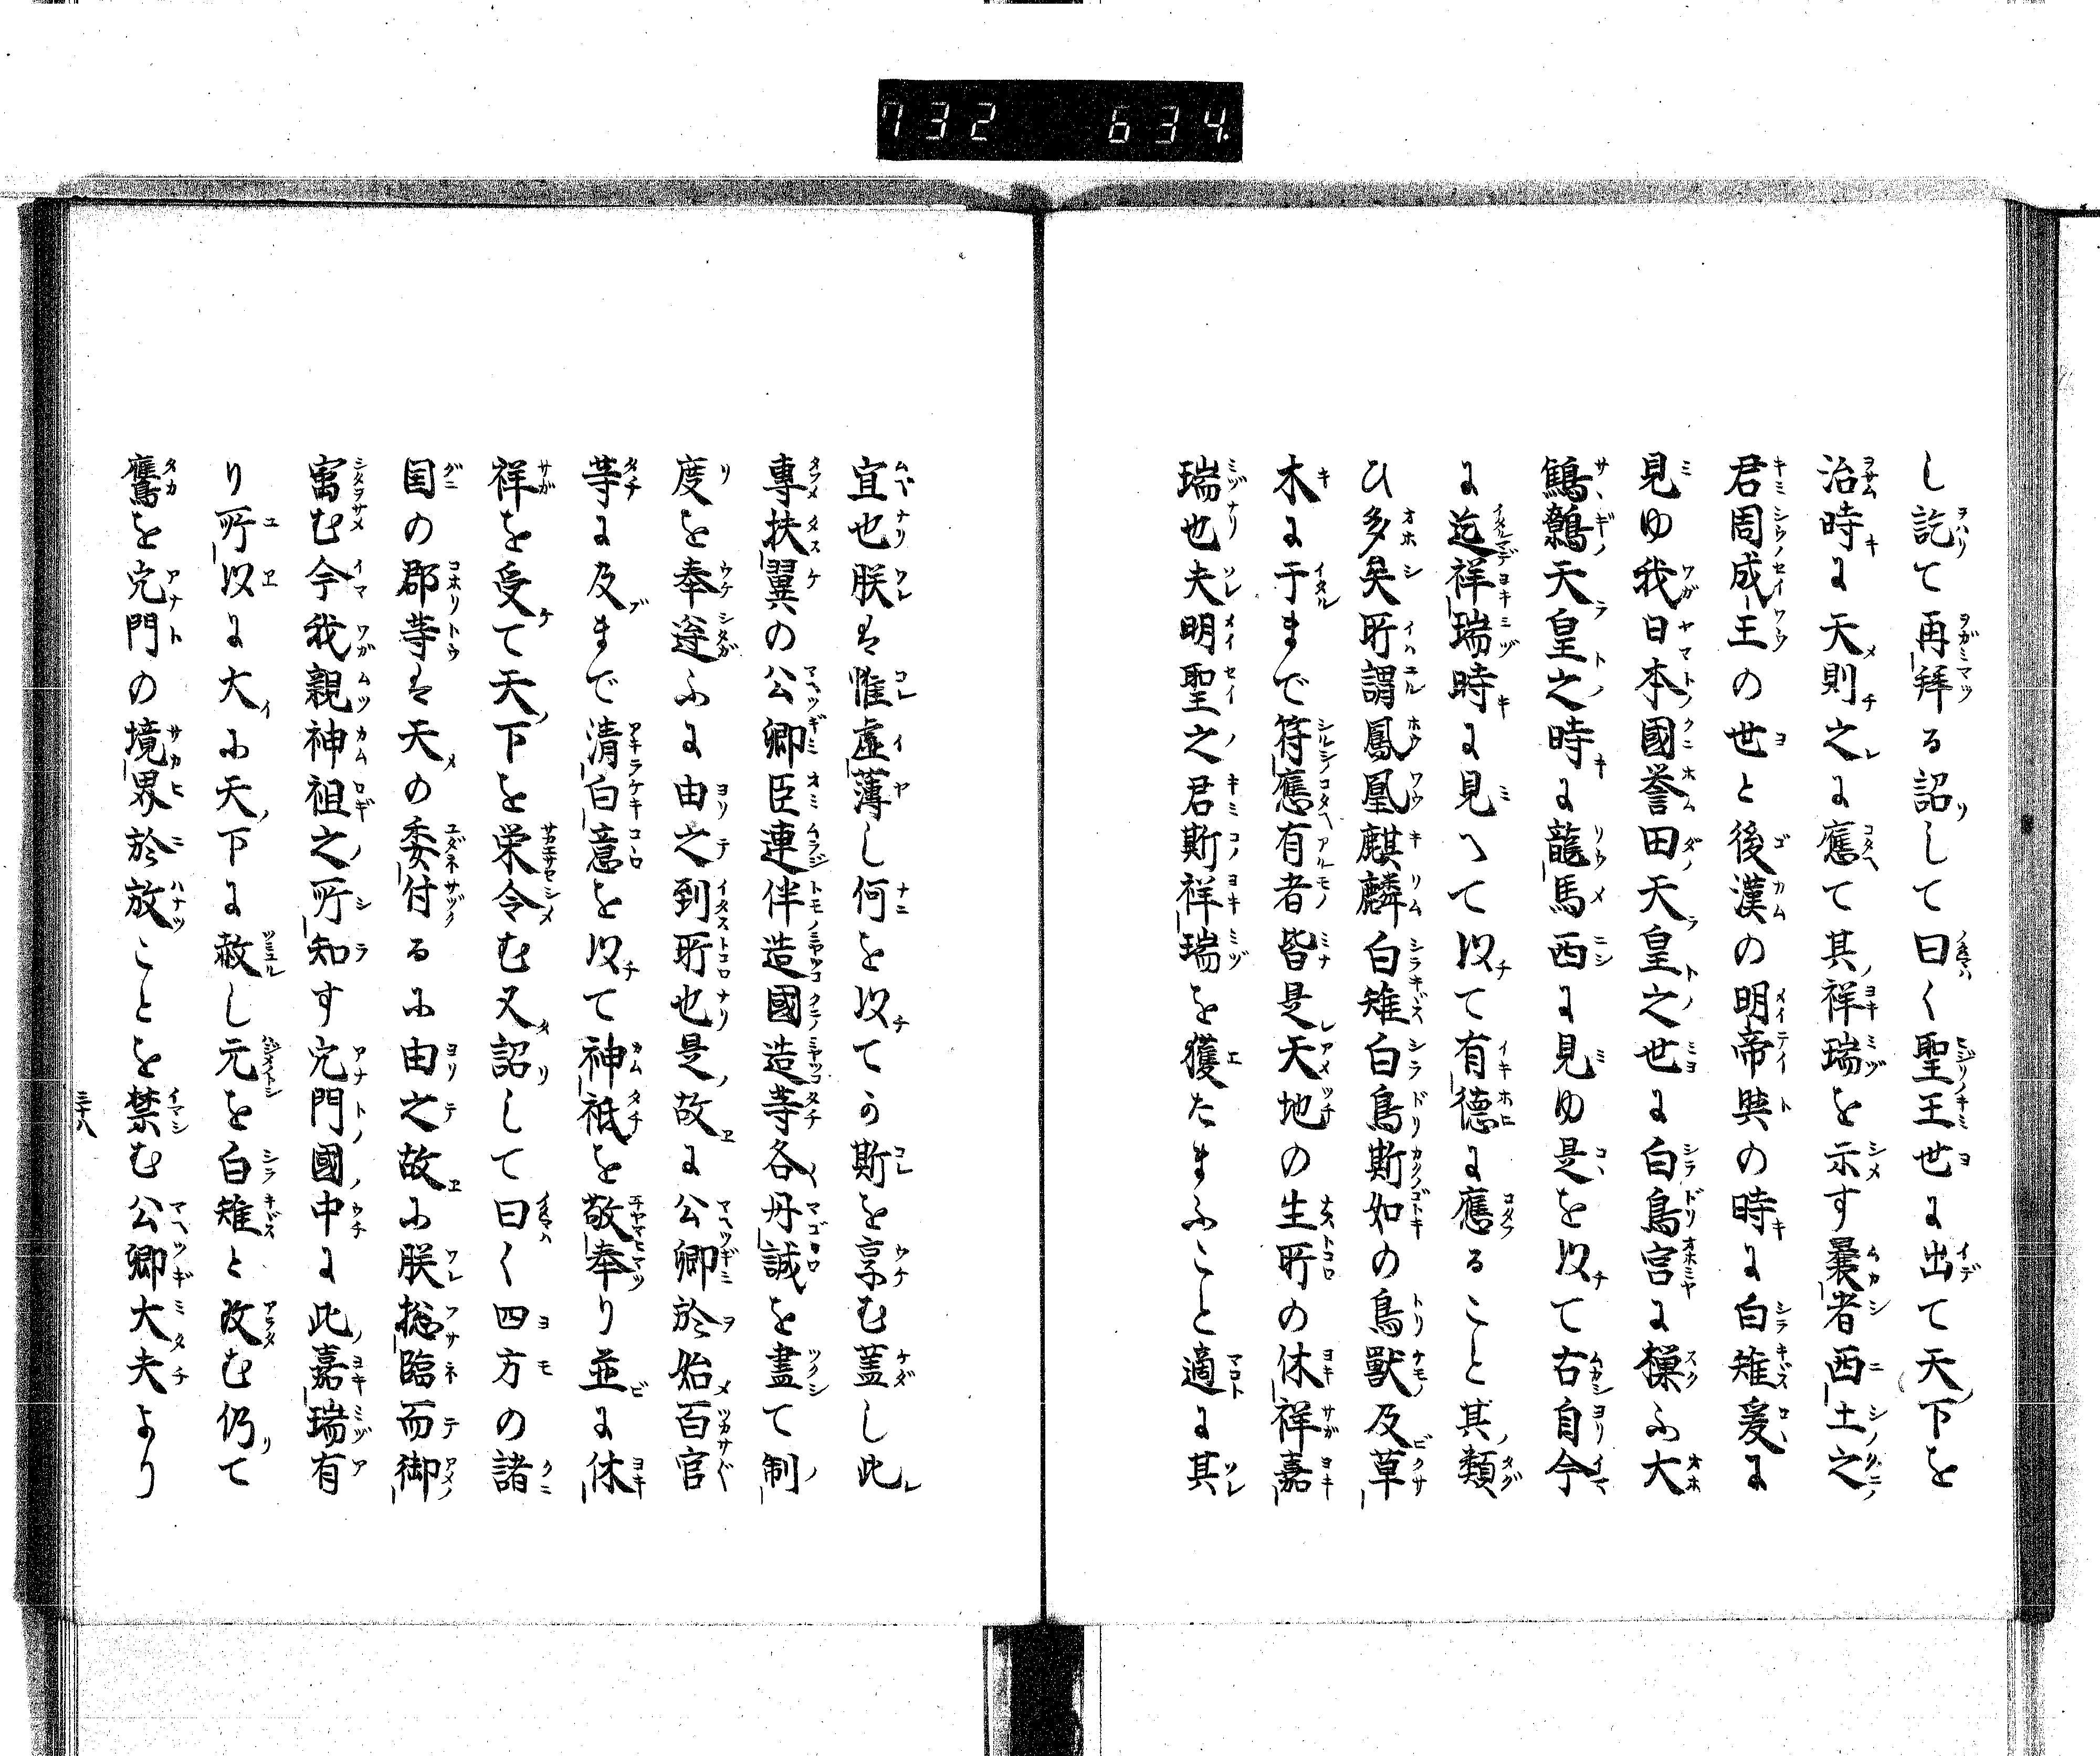 732 634
し訖て再拜る詔して曰く聖王世に出て天下を
治時に天則之に應て其祥瑞を示す曩者西土之
君周成王の世と後漢の明帝與の時に白雉爰に
見ゆ我日本國誉田天皇之世に白鳥宮に樔ふ大
鷦鷯天皇之時に龍馬西に見ゆ是を以て古自今
に迄祥瑞時に見へて以て有德に應ること其類
ひ多矣所謂鳳凰麒麟白雉白鳥斯如の鳥獸及草
木に于まで符應有者皆是天地の生所の休祥嘉
瑞也夫明聖之君斯祥瑞を獲たまふこと適に其
宜也朕は惟虚薄し何を以てか斯を享む蓋し此
專扶翼の公卿臣連伴造國造等各丹誠を盡て制
度を奉遵ふに由之到所也是故に公卿於始百官
等に及まで清白意を以て神祇を敬奉り並に休
祥を受て天下を栄令む又詔して曰く四方の諸
国の郡等は天の委付るふ由之故ふ朕揔臨而御
寓む今我親神祖之所知す宍門國中に此嘉瑞有
り所以に大ふ天下に赦し元を白雉と改む仍て
鷹を宍門の境界於放ことを禁む公卿大夫より
三十八